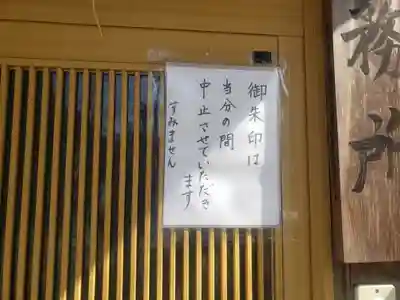 務所
御朱印は
当分の間
中止させていただき
ます
すみません